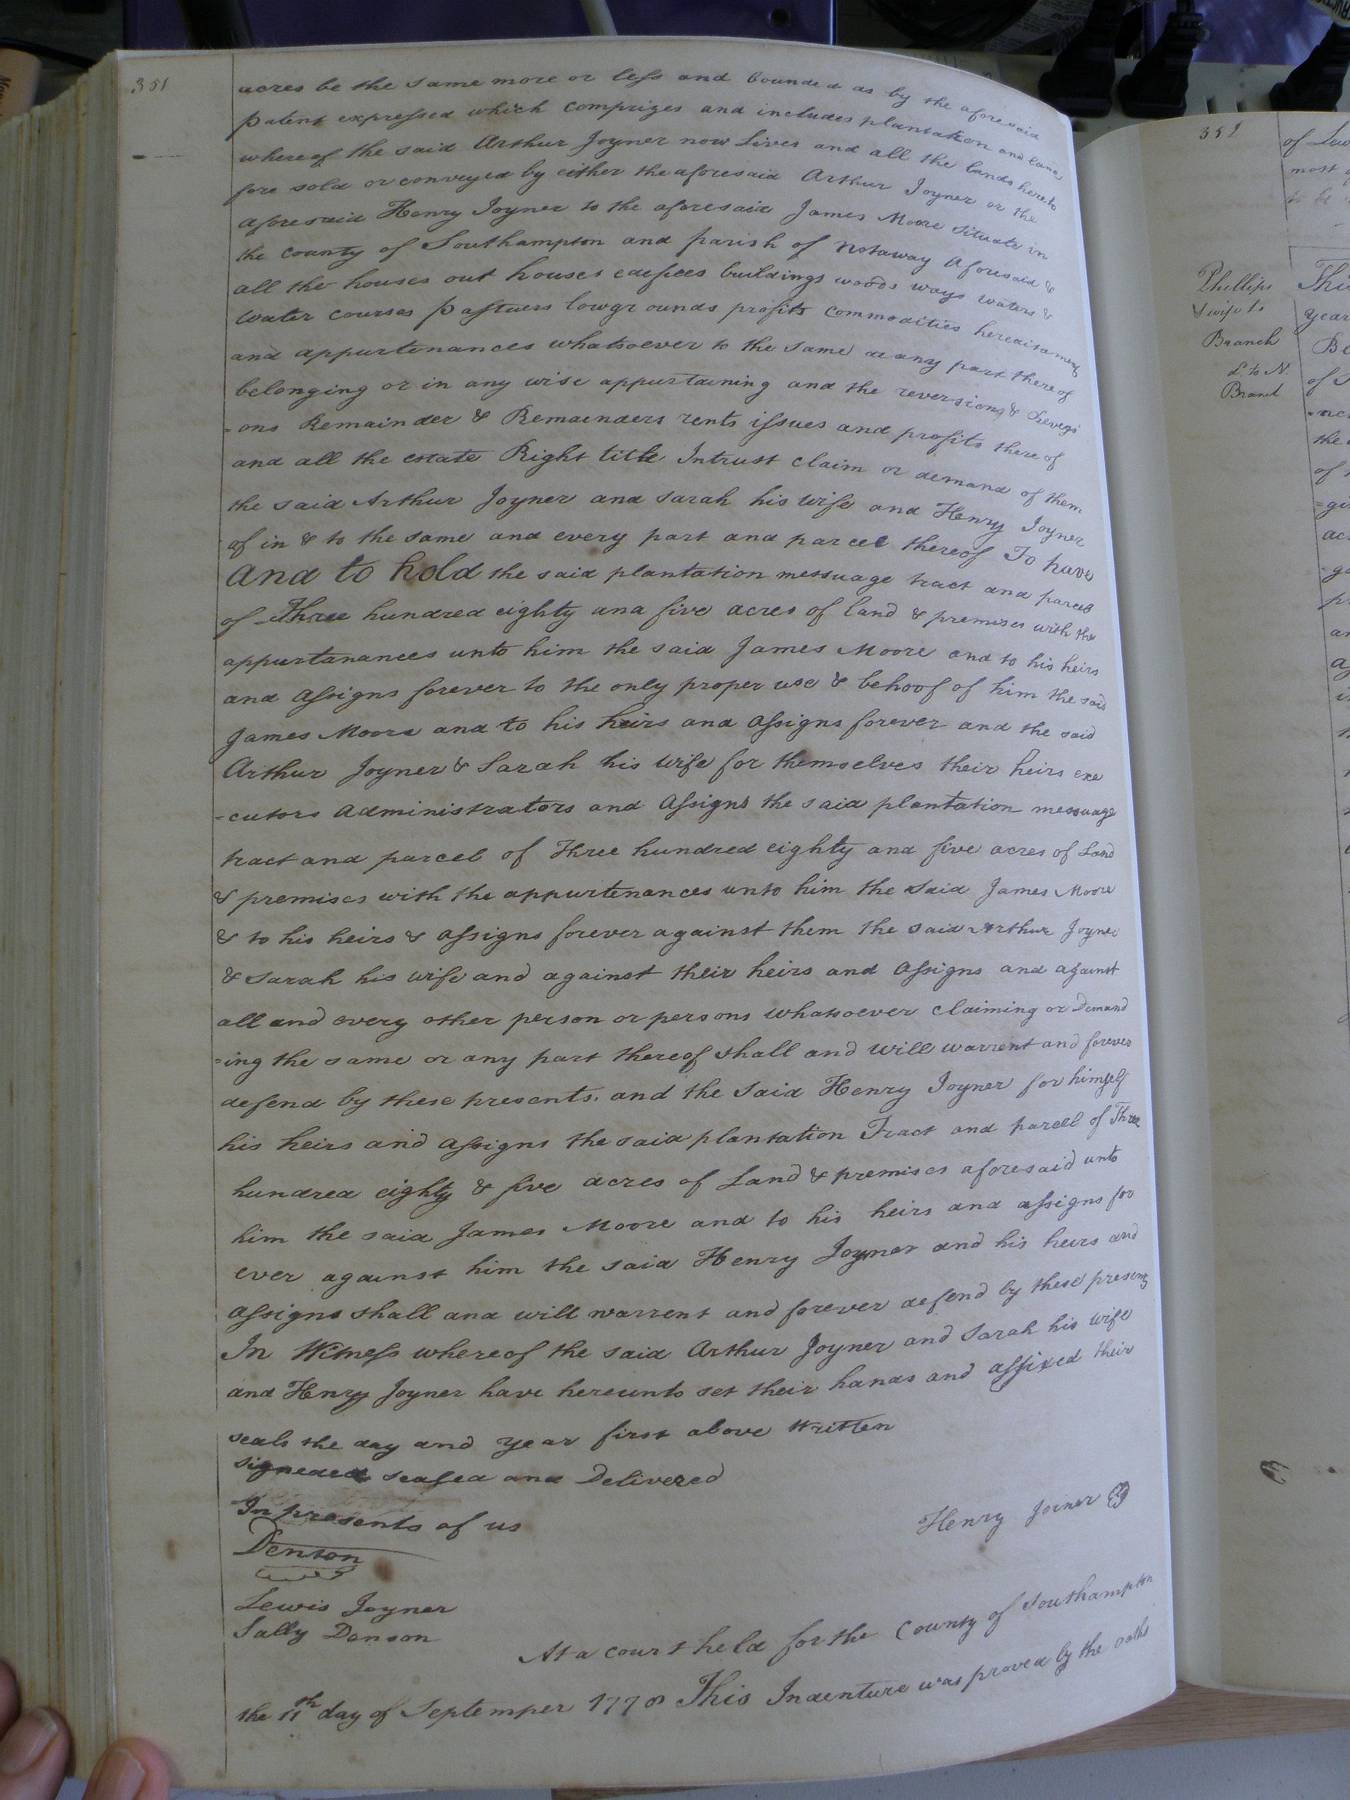 351
acres be the same more or less and bounded as by the aforesaid
patent expressed which comprizes and includes plantation and land
whereof the said Arthur Joyner now Lives and all the lands hereto
fore sold or conveyed by either the aforesaid Arthur Joyner or the
aforesaid Henry Joyner to the aforesaid James Moore situate in
the county of Southampton and parish of Notoway aforesaid &
all the houses out houses edifices buildings woods ways waters &
water courses pastures lowgrounds profits commodities hereditaments
and appurtenances whatsoever to the same or any part thereof
belonging or in any wise appurtaining and the reversions & Reversi
-ons Remainder & Remainders rents issues and profits thereof
and all the estate Right title Intrust claim or demand of them
the said Arthur Joyner and Sarah his wife and Henry Joyner
of in & to the same and every part and parcel thereof To have
and to hold the said plantation messuage tract and parcel
of Three hundred eighty and five acres of land & premises with the
appurtanances unto him the said James Moore and to his heirs
and assigns forever to the only proper use & behoof of him the said
James Moore and to his heirs and assigns forever and the said
Arthur Joyner & Sarah his wife for themselves their heirs exe
-cutors administrators and assigns the said plantation messuage
tract and parcel of Three hundred eighty and five acres of Land
& premises with the appurtenances unto him the said James Moore
& to his heirs & assigns forever against them the said Arthur Joyner
& Sarah his wife and against their heirs and assigns and against
all and every other person or persons whatsoever claiming or Demand
=ing the same or any part thereof shall and will warrent and forever
defend by these presents. and the said Henry Joyner for himself
his heirs and assigns the said plantation Tract and parcel of Three
hundred eighty & five acres of Land & premises aforesaid unto
him the said James Moore and to his heirs and assigns for
ever against him the said Henry Joyner and his heirs and
assigns shall and will warrent and forever defend by these presents
In Witness whereof the said Arthur Joyner and Sarah his wife
and Henry Joyner have hereunto set their hands and affixed their
seals the day and year first above Written
signeded sealed and Delivered
In presents of us
Henry Joiner
Denson
Lewis Joyner
Sally Denson
At a court held for the County of Southampton
the 11th day of September 1778 This Indenture was proved by the oaths
352
Phillips
Swife to
Branch
L to N.
Branch
of Law
most
to be
Thi
year
Be
of
the
of